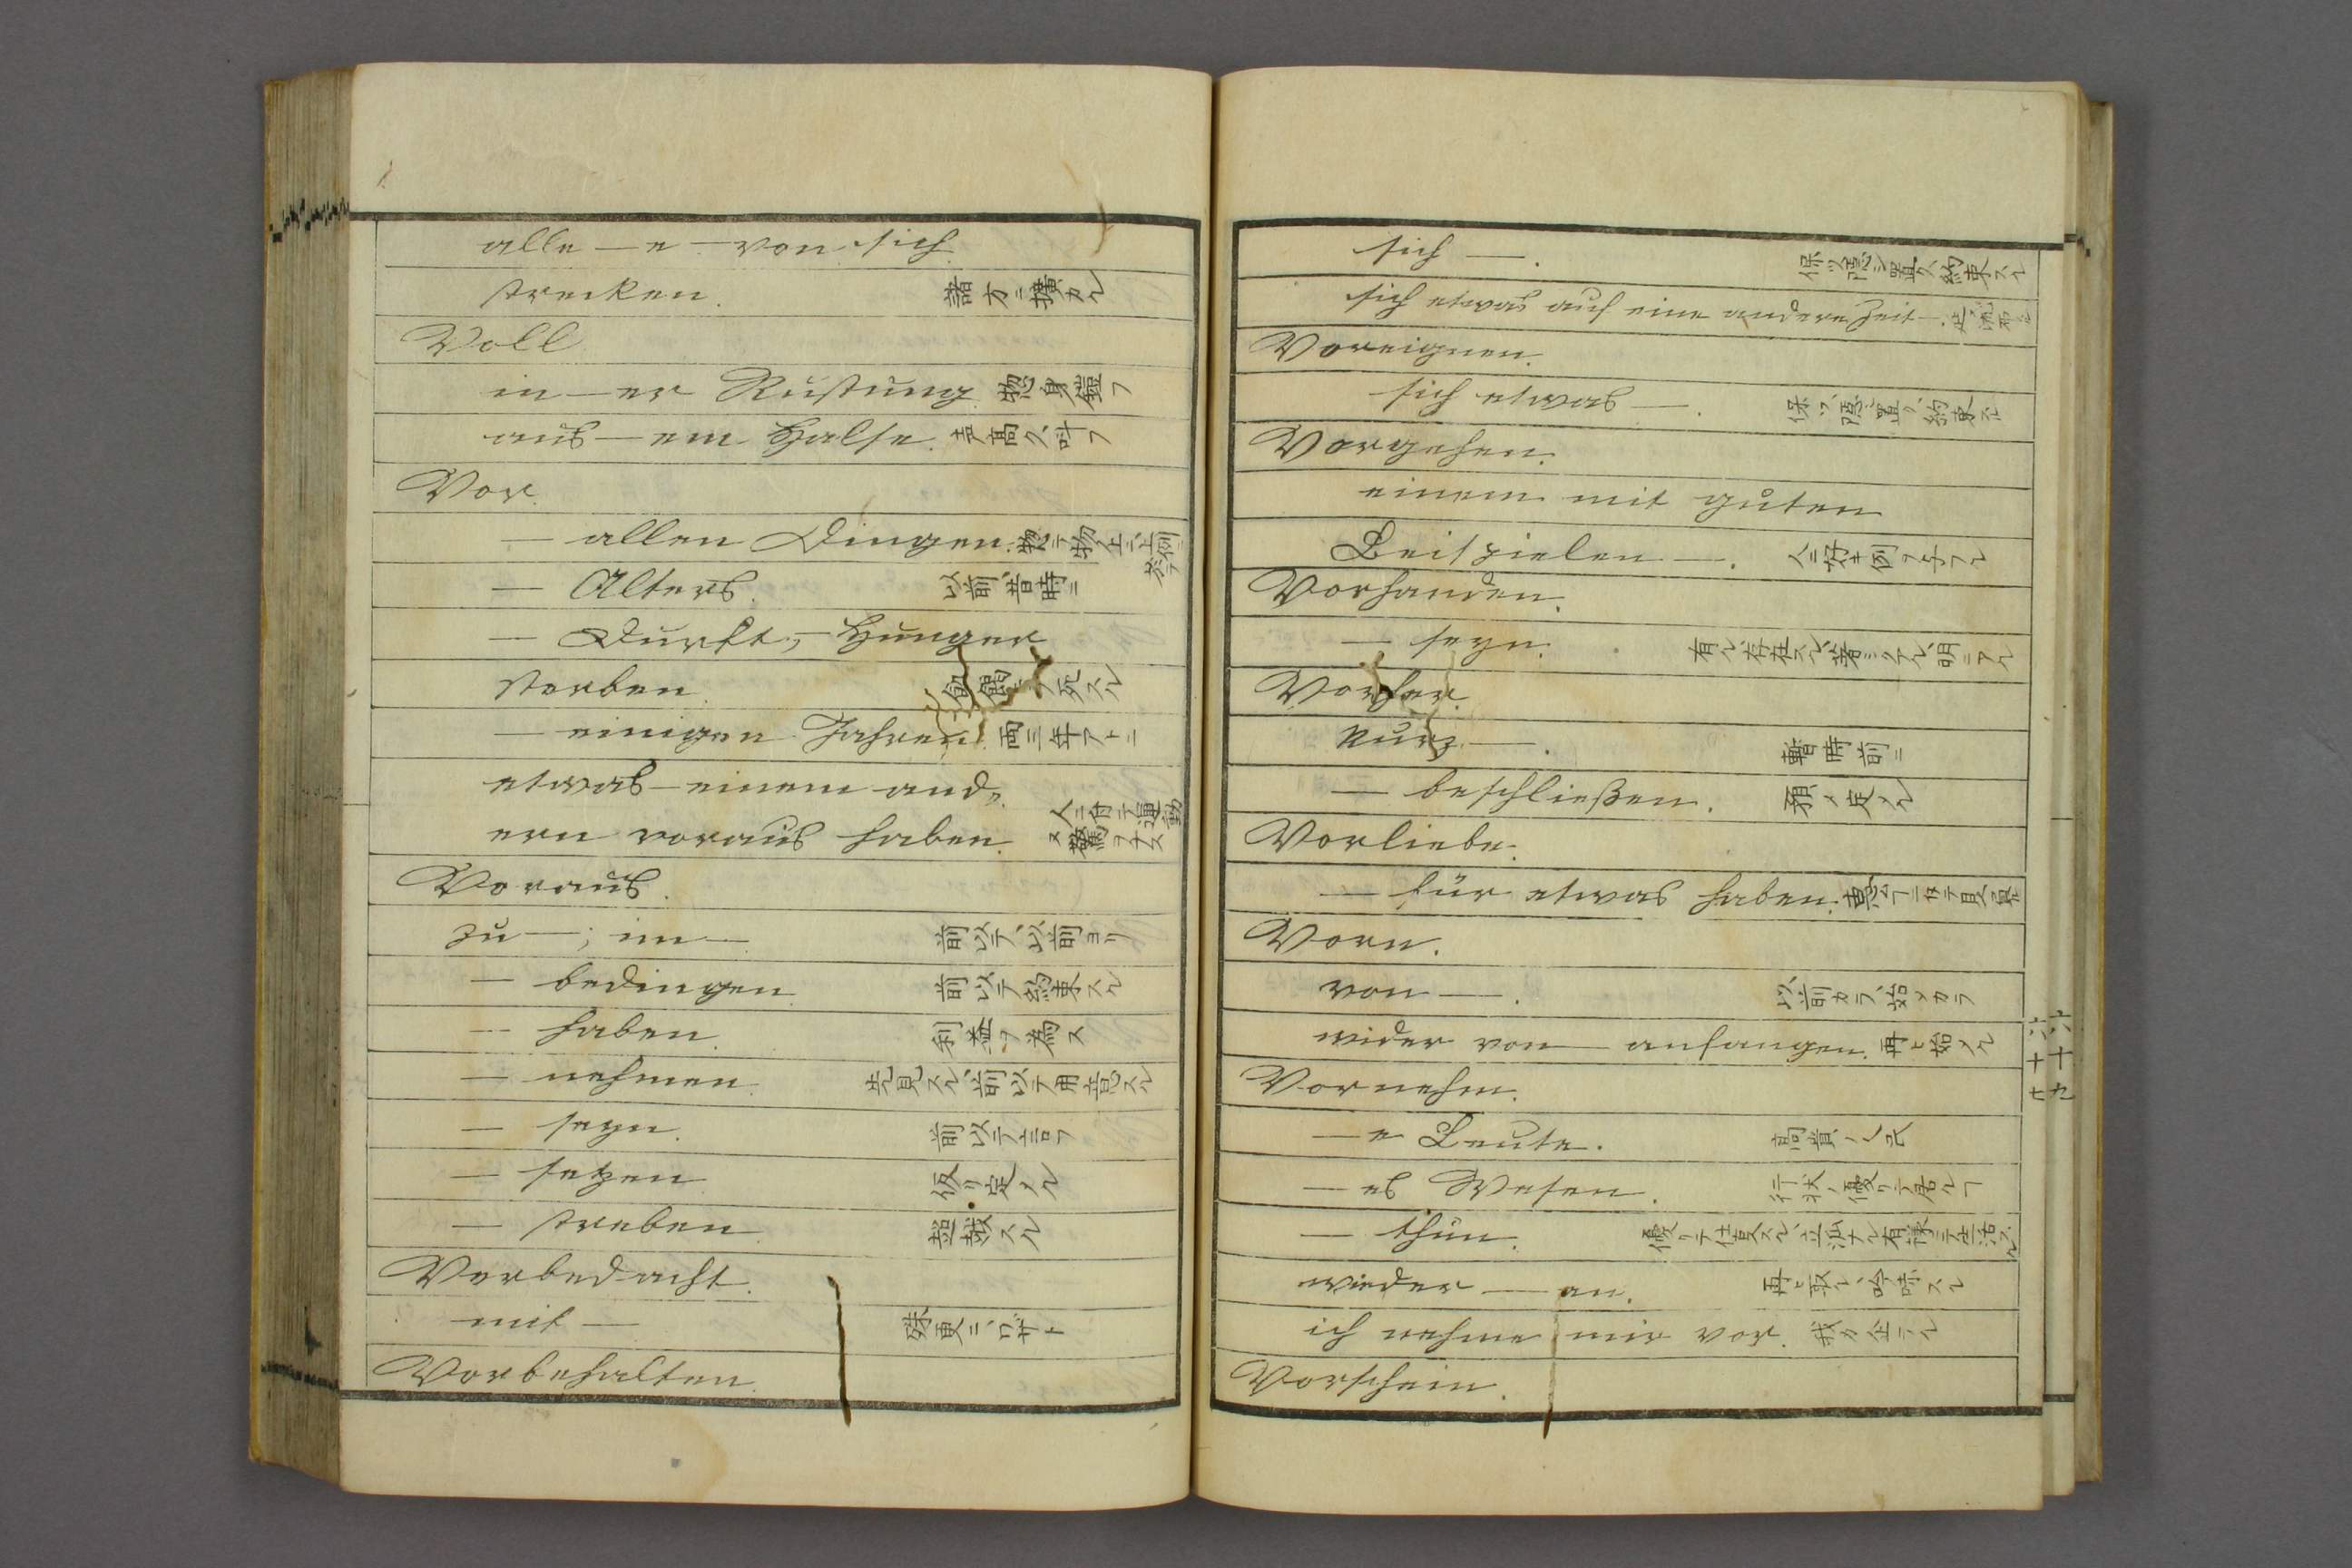 alle — e — von sich
strecken. 諸方ニ擴カル
Voll
in — er Rüstung. 惣身鎧フ
aus — em Halse. 声高ク叫フ
Vor.
— allen Dingen.
— Alters. 以前、昔時ニ
— Durst, — Hunger
sterben. 飢餲ヲ死スル
— einigen Jahren. 両三年アトニ
etwas — einem and„
ern voraus haben.
Voraus.
zu —; im — 前以テ、以前ヨリ
— bedingen 前以テ約束スル
— haben. 利益ヲ為ス
— nehmen. 先見スル、前以テ用意スル
— seyn. 前以テ言フ
— setzen 仮リ定メル
— streben. 超越スル
Vorbedacht.
mit — 殊更ニ、ワザト
Vorbehalten.
sich —. 保ツ、隠シ置ク、約束スル
sich etwas auf eine andere Zeit —.
Voreignen.
sich etwas —. 保ツ、隠シ置ク、約束スル
Vorgehen.
einem mit guten
Beispielen —. 人ニ好キ例ヲ与フル
Vorhanden.
— seyn. 有ル、存在スル、著ミクアル、明ニアル
Vorher.
kurz —. 暫時前ニ
— beschließen. 預メ定メル
Vorliebe.
— für etwas haben.
Vorn.
von —. 以前カラ、始メカラ
wider von — anfangen. 再ヒ始メル
Vornehm.
— e Leute. 高貴ノ人民
— es Wesen. 行状ノ優リテ居ルフ
— thun.
wieder — an.
ich nehme mir vor. 我カ企テル
Vorschein.
六十九